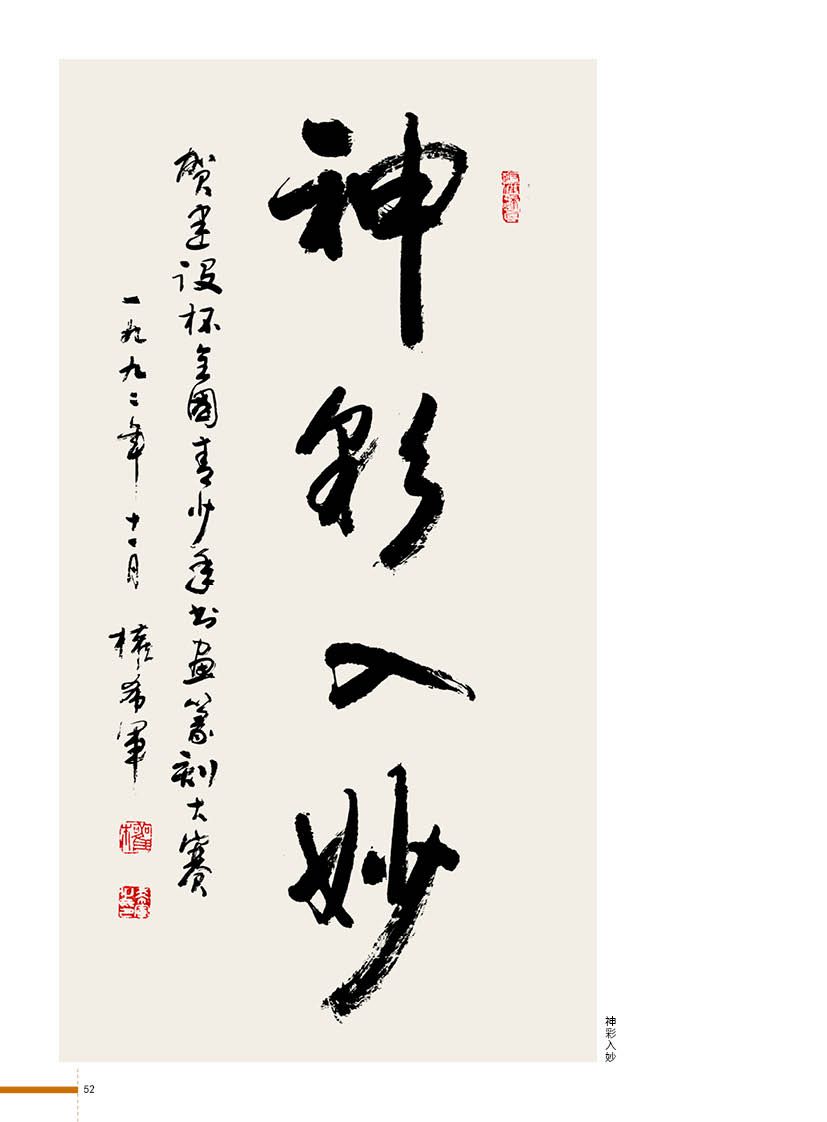 神彩入妙
贺建设杯全國青少年书画篆刻大赛
一九九二年十一月 權希軍
神彩入妙
52